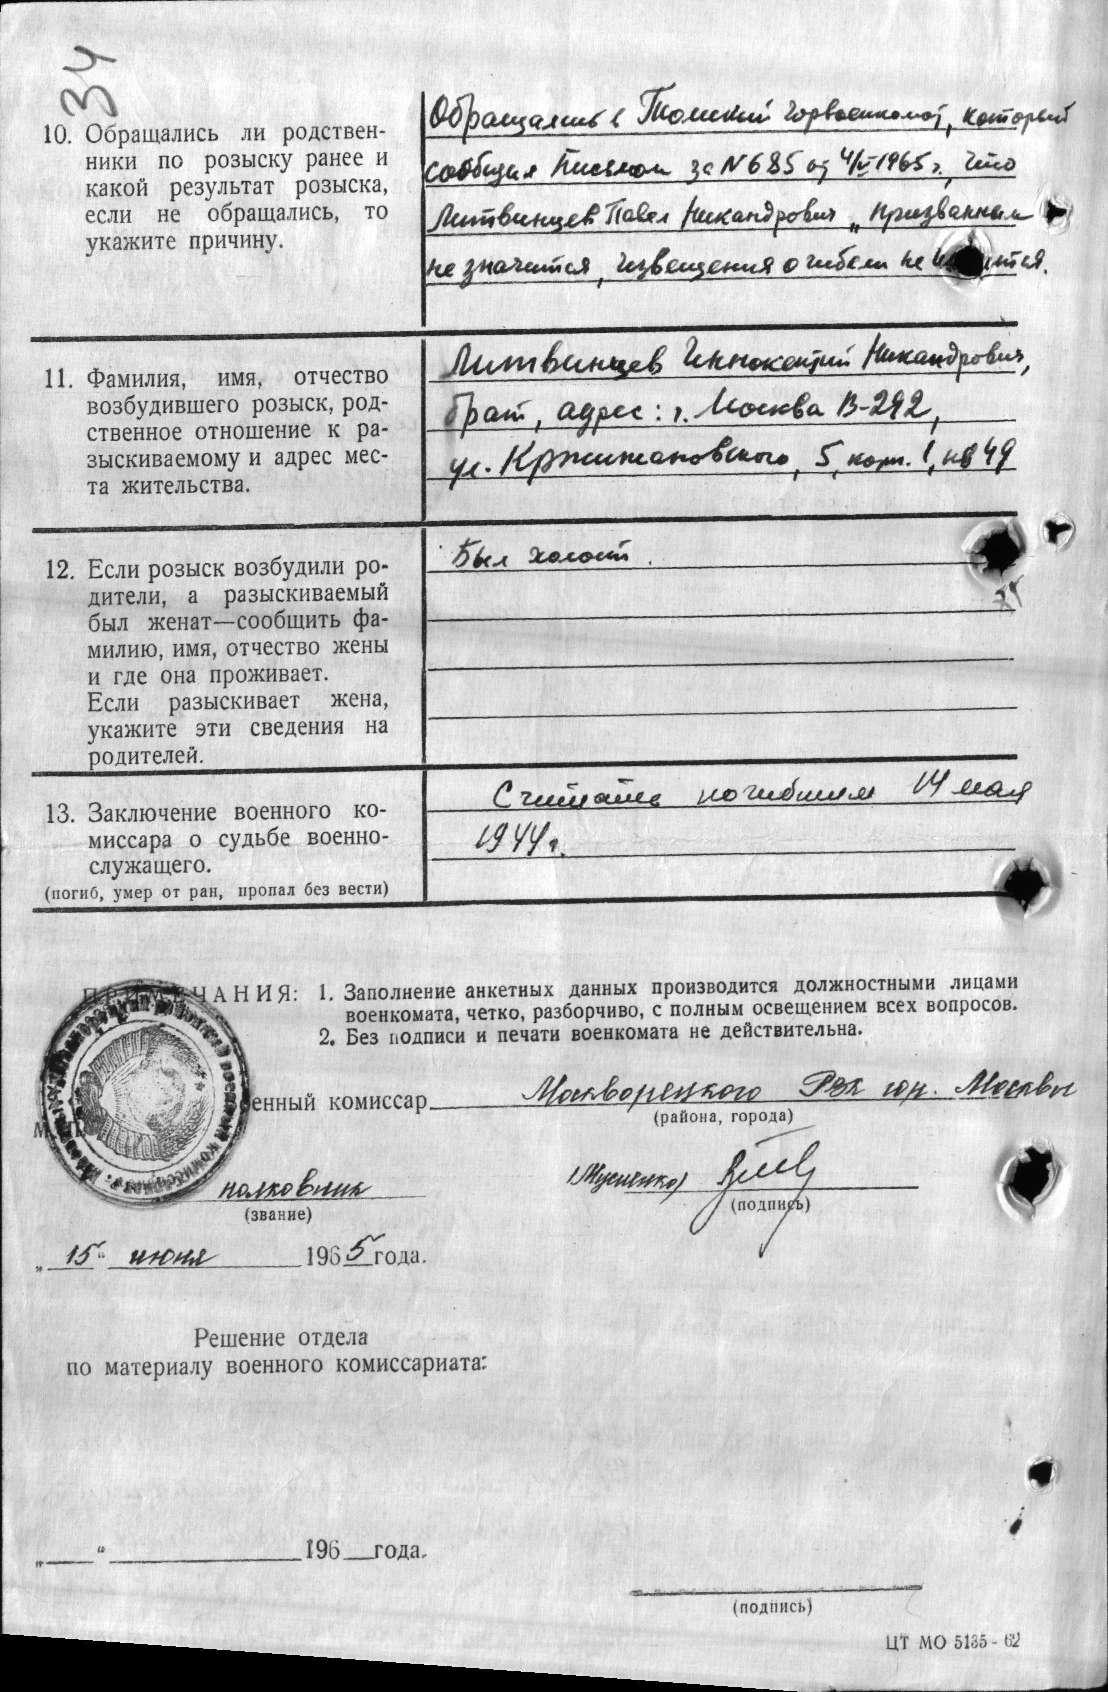 34
10. Обращались ли родствен-
ники по розыску ранее и
какой результат розыска,
если не обращались, то
укажите причину.
Обращались в Томский горвоенкомат, который
сообщил письмом за № 685 от 4/VI 1965 г., что
Литвинцев Павел Никандрович „призванным
не значится, извещения о гибели не
11. Фамилия, имя, отчество
возбудившего розыск, род-
ственное отношение к ра-
зыскиваемому и адрес мес-
та жительства.
Литвинцев Иннокентий Никандрович,
брат, адрес: г. Москва В-292,
ул. Кржижановского, 5, корп. 1, кв 49
12. Если розыск возбудили ро-
дители, а разыскиваемый
был женат—сообщить фа-
милию, имя, отчество жены
и где она проживает.
Если разыскивает жена,
укажите эти сведения на
родителей.
Был холост.
13. Заключение военного ко-
миссара о судьбе военно-
служащего.
(погиб, умер от ран, пропал без вести)
Считать погибшим 14 мая
1944 г.
ПРИМЕЧАНИЯ: 1. Заполнение анкетных данных производится должностными лицами
военкомата, четко, разборчиво, с полным освещением всех вопросов.
2. Без подписи и печати военкомата не действительна.
енный комиссар Москворецкого РВК гор. Москвы
(района, города)
полковник
(звание)
(подпись)
„15“ июня 1965 года.
Решение отдела
по материалу военного комиссариата:
„ “ 196 года.
(подпись)
ЦТ МО 5135 - 62